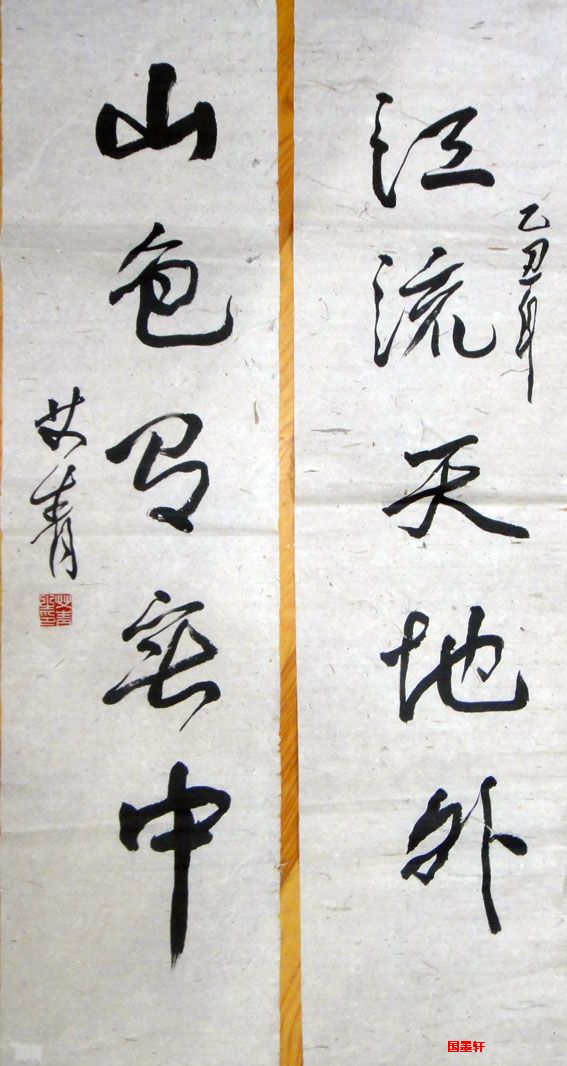 江流天地外
乙丑年
山色有無中
艾青
国墨轩